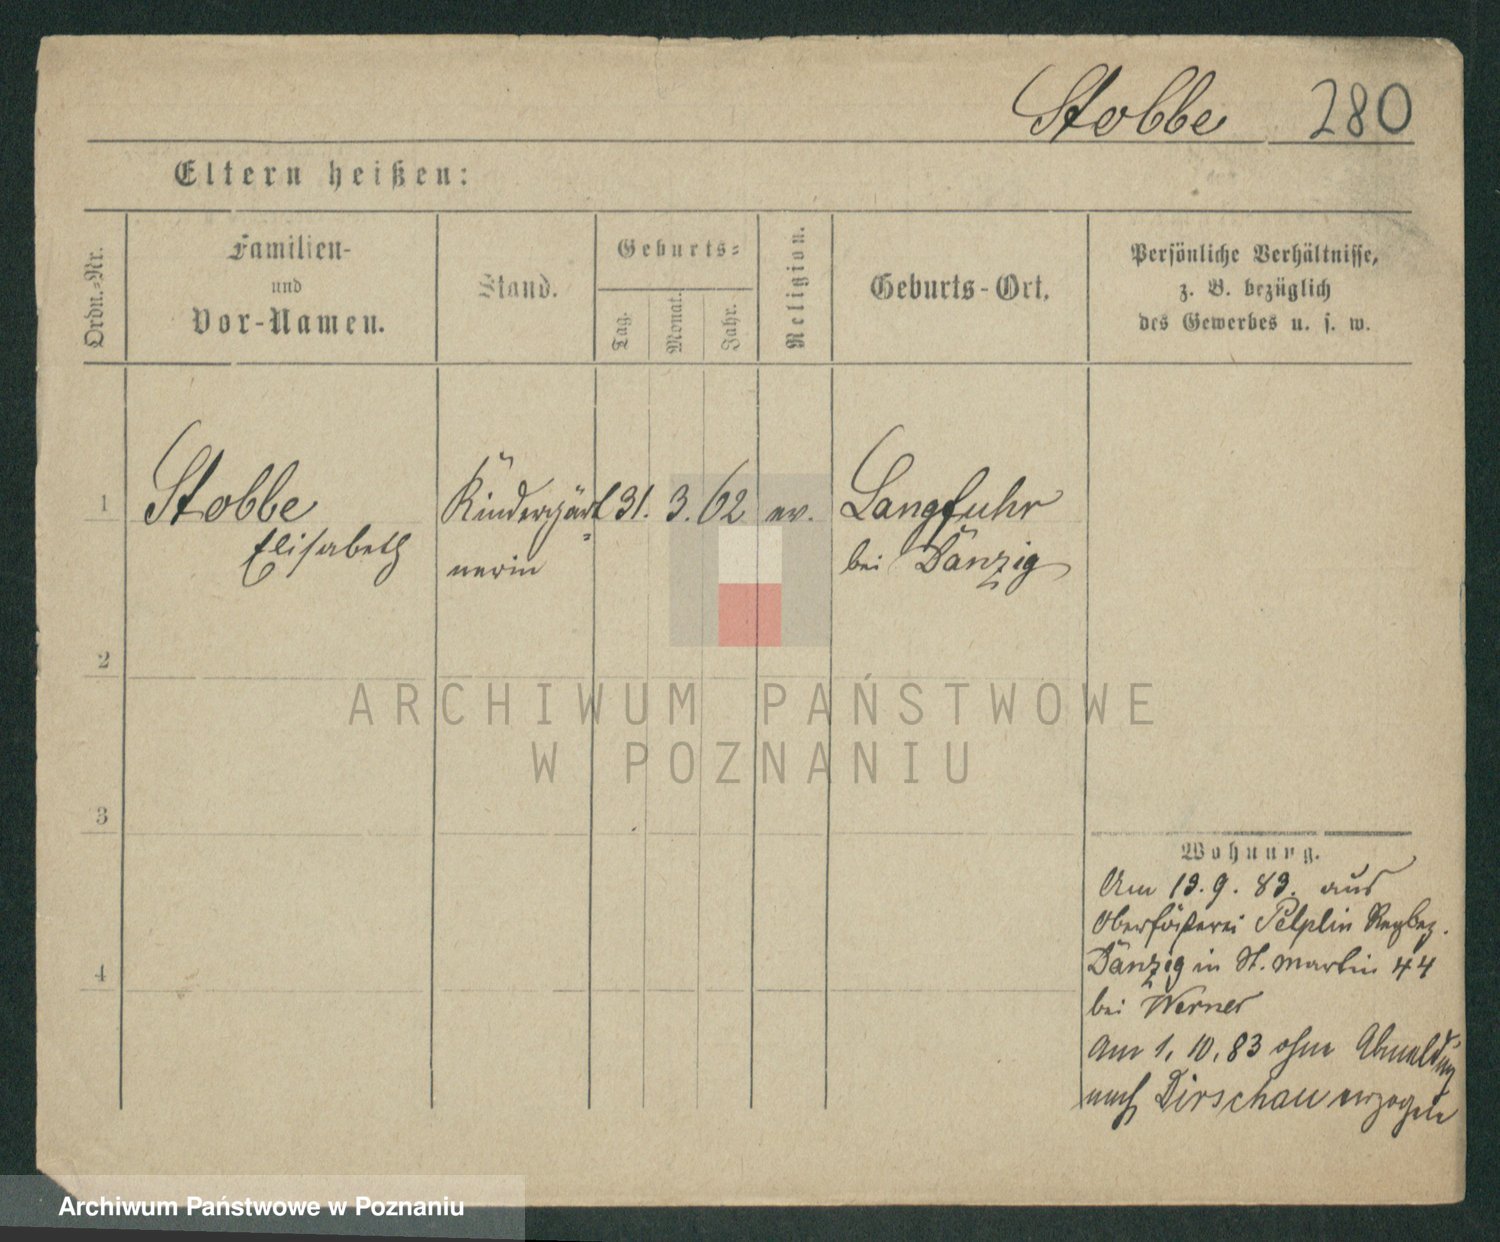 Stobbe 280
Eltern heißen:
Ordn.-Nr.
Familien-
und
Vor-Namen.
Stand.
Geburts-
Tag.
Monat.
Jahr.
Religion.
Geburts-Ort.
Persönliche Verhältnisse,
z. B. bezüglich
des Gewerbes u. s. w.
1 Stobbe Kindergärt 31. 3. 62 ev. Langfuhr
Elisabeth nerin bei Danzig
2
3
4
Wohnung.
Am 13. 9. 83. aus
Oberförsterei Pelplin Regbez.
Danzig in St. Martin 44
bei Werner
Am 1. 10. 83 ohne Abmeldung
nach Dirschau verzogen
ARCHIWUM PAŃSTWOWE
W POZNANIU
Archiwum Państwowe w Poznaniu